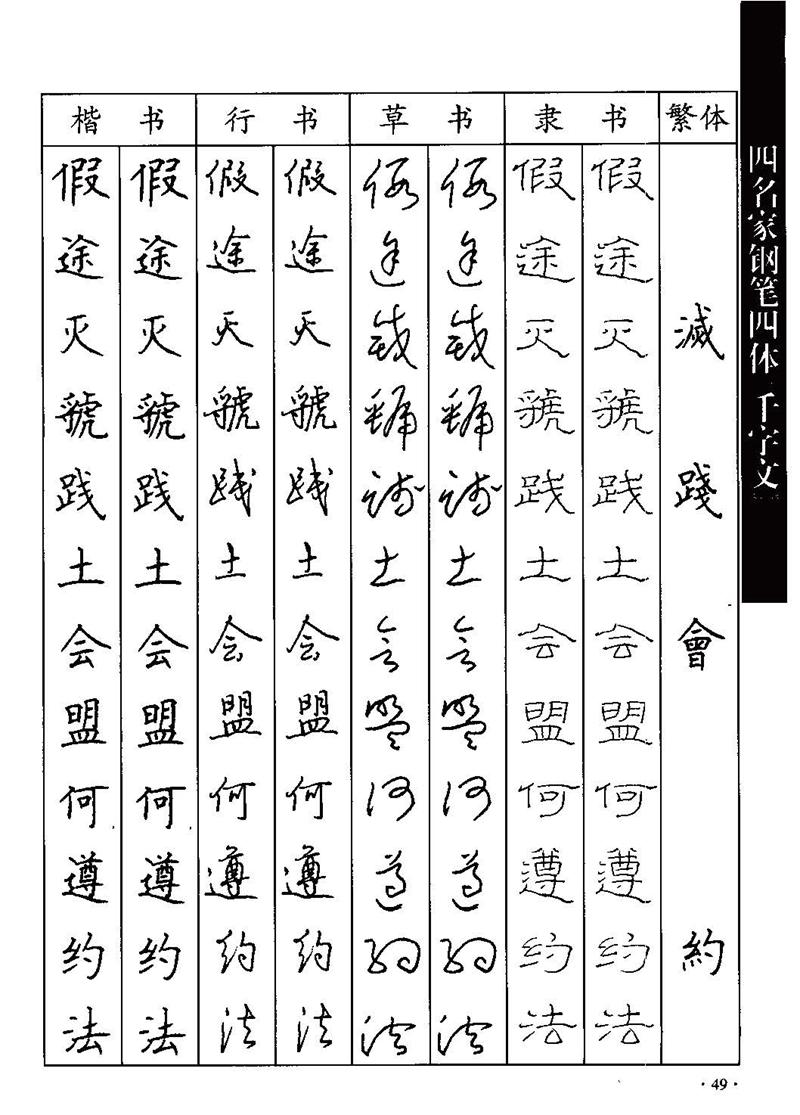 楷书 行书 草书 隶书 繁体
假途灭虢践土会盟何遵约法
假途灭虢践土会盟何遵约法
假途灭虢践土会盟何遵约法
假途灭虢践土会盟何遵约法
假途灭虢践土会盟何遵约法
假途灭虢践土会盟何遵约法
假途灭虢践土会盟何遵约法
假途灭虢践土会盟何遵约法
滅踐會約
四名家钢笔四体《千字文》
·49·